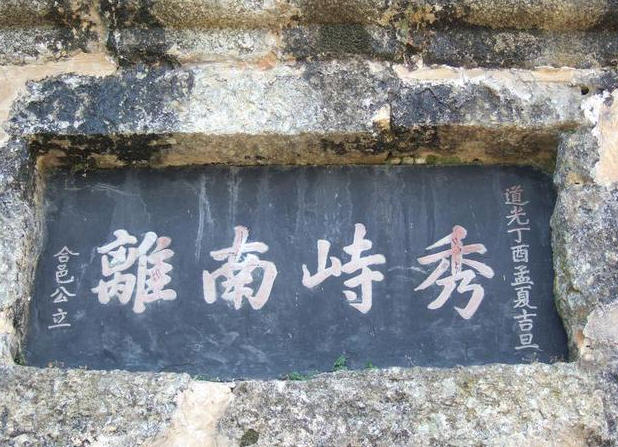 道光丁酉孟夏吉旦
秀峙南離
合邑公立